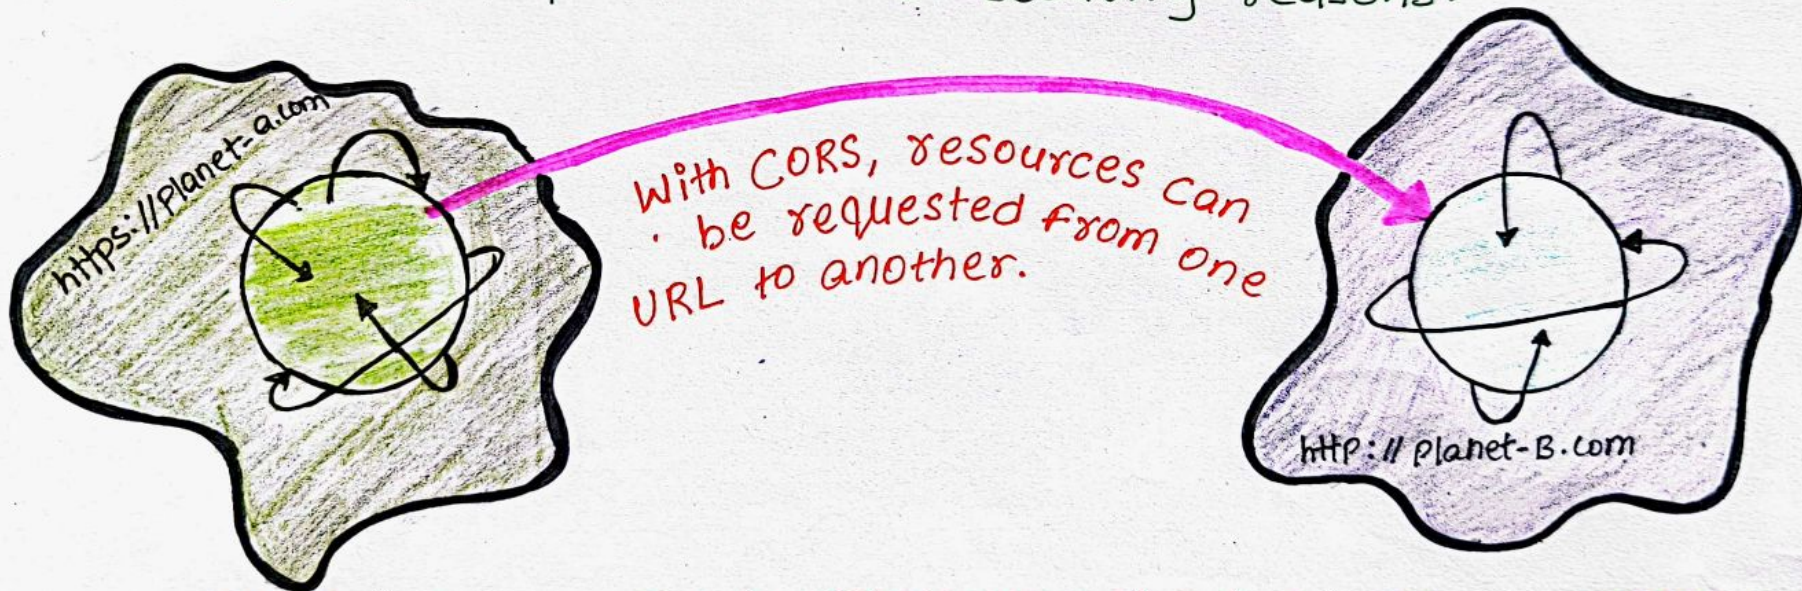 reasons.
https://Planet-a.com
With CORS, resources can
be requested from one
URL to another.
http://Planet-B.com